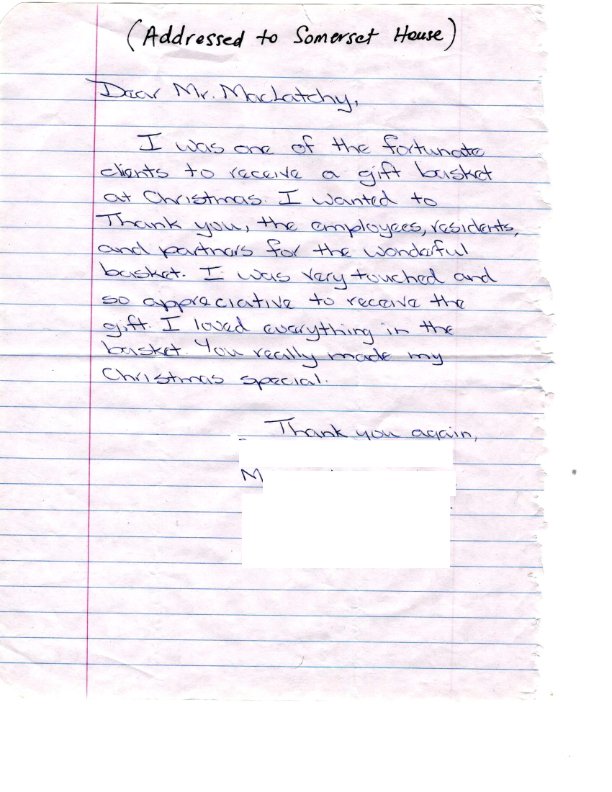 (Addressed to Somerset House)
Dear Mr. MacLatchy,
I was one of the fortunate
clients to receive a gift basket
at Christmas. I wanted to
Thank you, the employees, residents,
and partners for the wonderful
basket. I was very touched and
so appreciative to receive the
gift. I loved everything in the
basket. You really made my
Christmas special.
Thank you again,
M